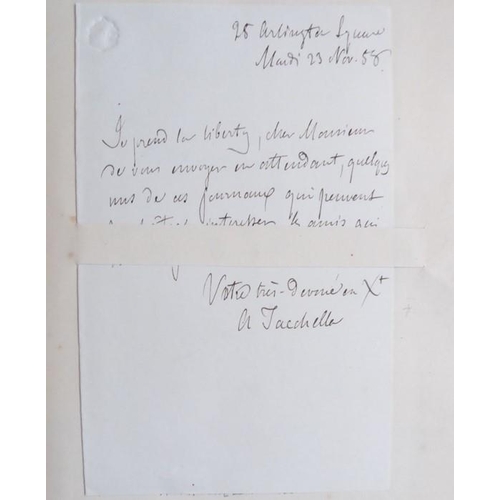 25 Arlington Square
Mardi 23 Nov. 58
Je prend la liberty, cher Monsieur
de vous envoyer en attendant, quelques
uns de ces journaux qui peuvent
interesser le amis qui
Votre très-devoué en X+
A Tacchella